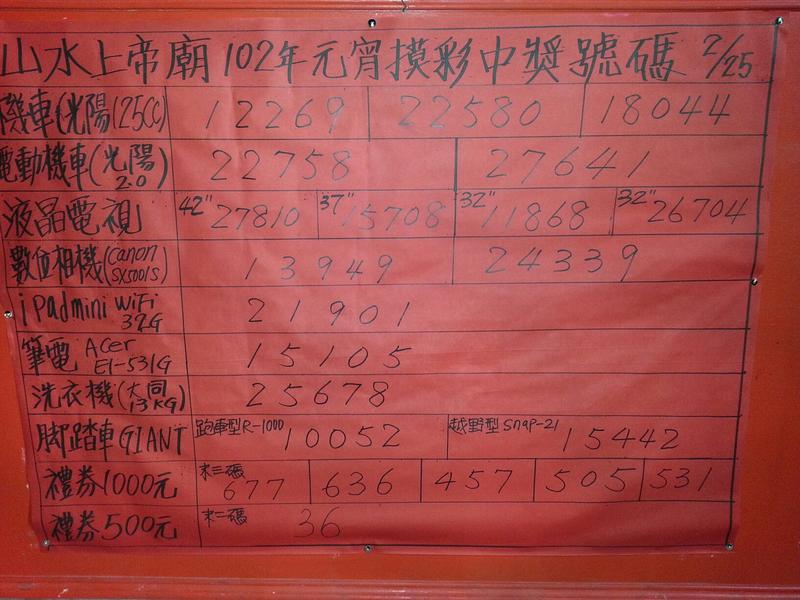 山水上帝廟102年元宵摸彩中獎號碼 2/25
機車(光陽125CC) 12269 22580 18044
電動機車(光陽2.0) 22758 27641
液晶電視 42" 27810 37" 15708 32" 11868 32" 26704
數位相機(canon SX500IS) 13949 24339
ipadmini WiFi 32G 21901
筆電 Acer E1-531G 15105
洗衣機(大同13KG) 25678
脚踏車GIANT 跑車型R-1000 10052 越野型snap-21 15442
禮券1000元 末三碼 677 636 457 505 531
禮券500元 末二碼 36